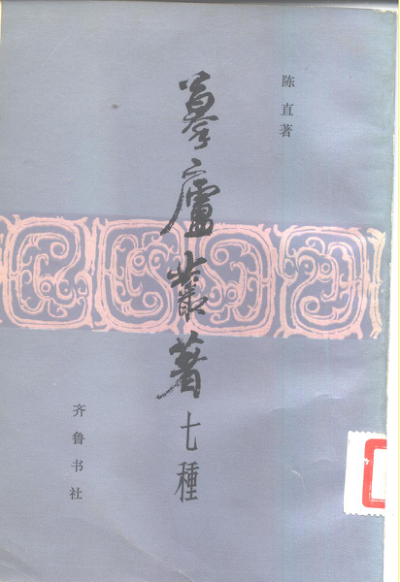 陈直著
摹廬叢著七種
齐鲁书社